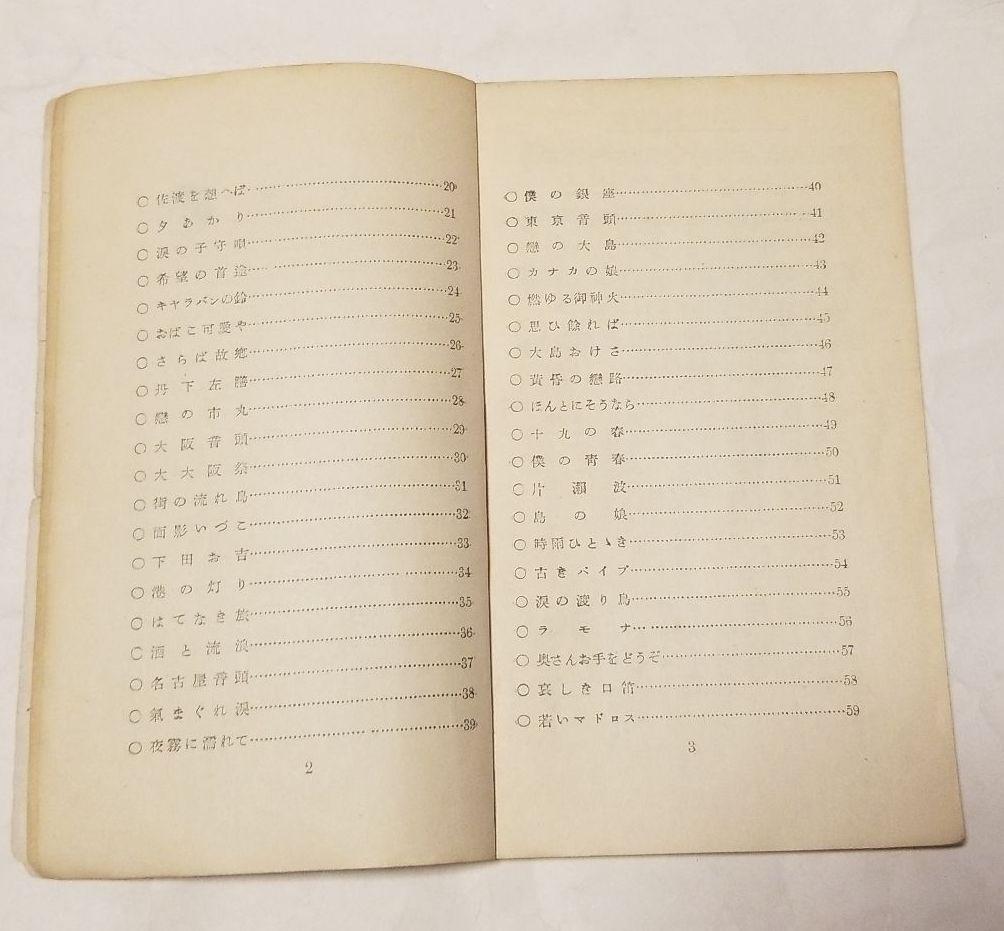 ○佐渡を想へば……………20
○夕あかり……………21
○涙の子守唄……………22
○希望の首途……………23
○キャラバンの鈴……………24
○おばこ可愛や……………25
○さらば故鄕……………26
○丹下左膳……………27
○戀の市丸……………28
○大阪音頭……………29
○大大阪祭……………30
○街の流れ鳥……………31
○面影いづこ……………32
○下田お吉……………33
○港の灯り……………34
○はてなき旅……………35
○酒と流浪……………36
○名古屋音頭……………37
○氣まぐれ涙……………38
○夜霧に濡れて……………39
2
○僕の銀座……………40
○東京音頭……………41
○戀の大島……………42
○カナカの娘……………43
○燃ゆる御神火……………44
○思ひ餘れば……………45
○大島おけさ……………46
○黃昏の戀路……………47
○ほんとにそうなら……………48
○十九の春……………49
○僕の靑春……………50
○片瀬波……………51
○島の娘……………52
○時雨ひとゝき……………53
○古きパイプ……………54
○涙の渡り鳥……………55
○ラモナ……………56
○奥さんお手をどうぞ……………57
○哀しき口笛……………58
○若いマドロス……………59
3